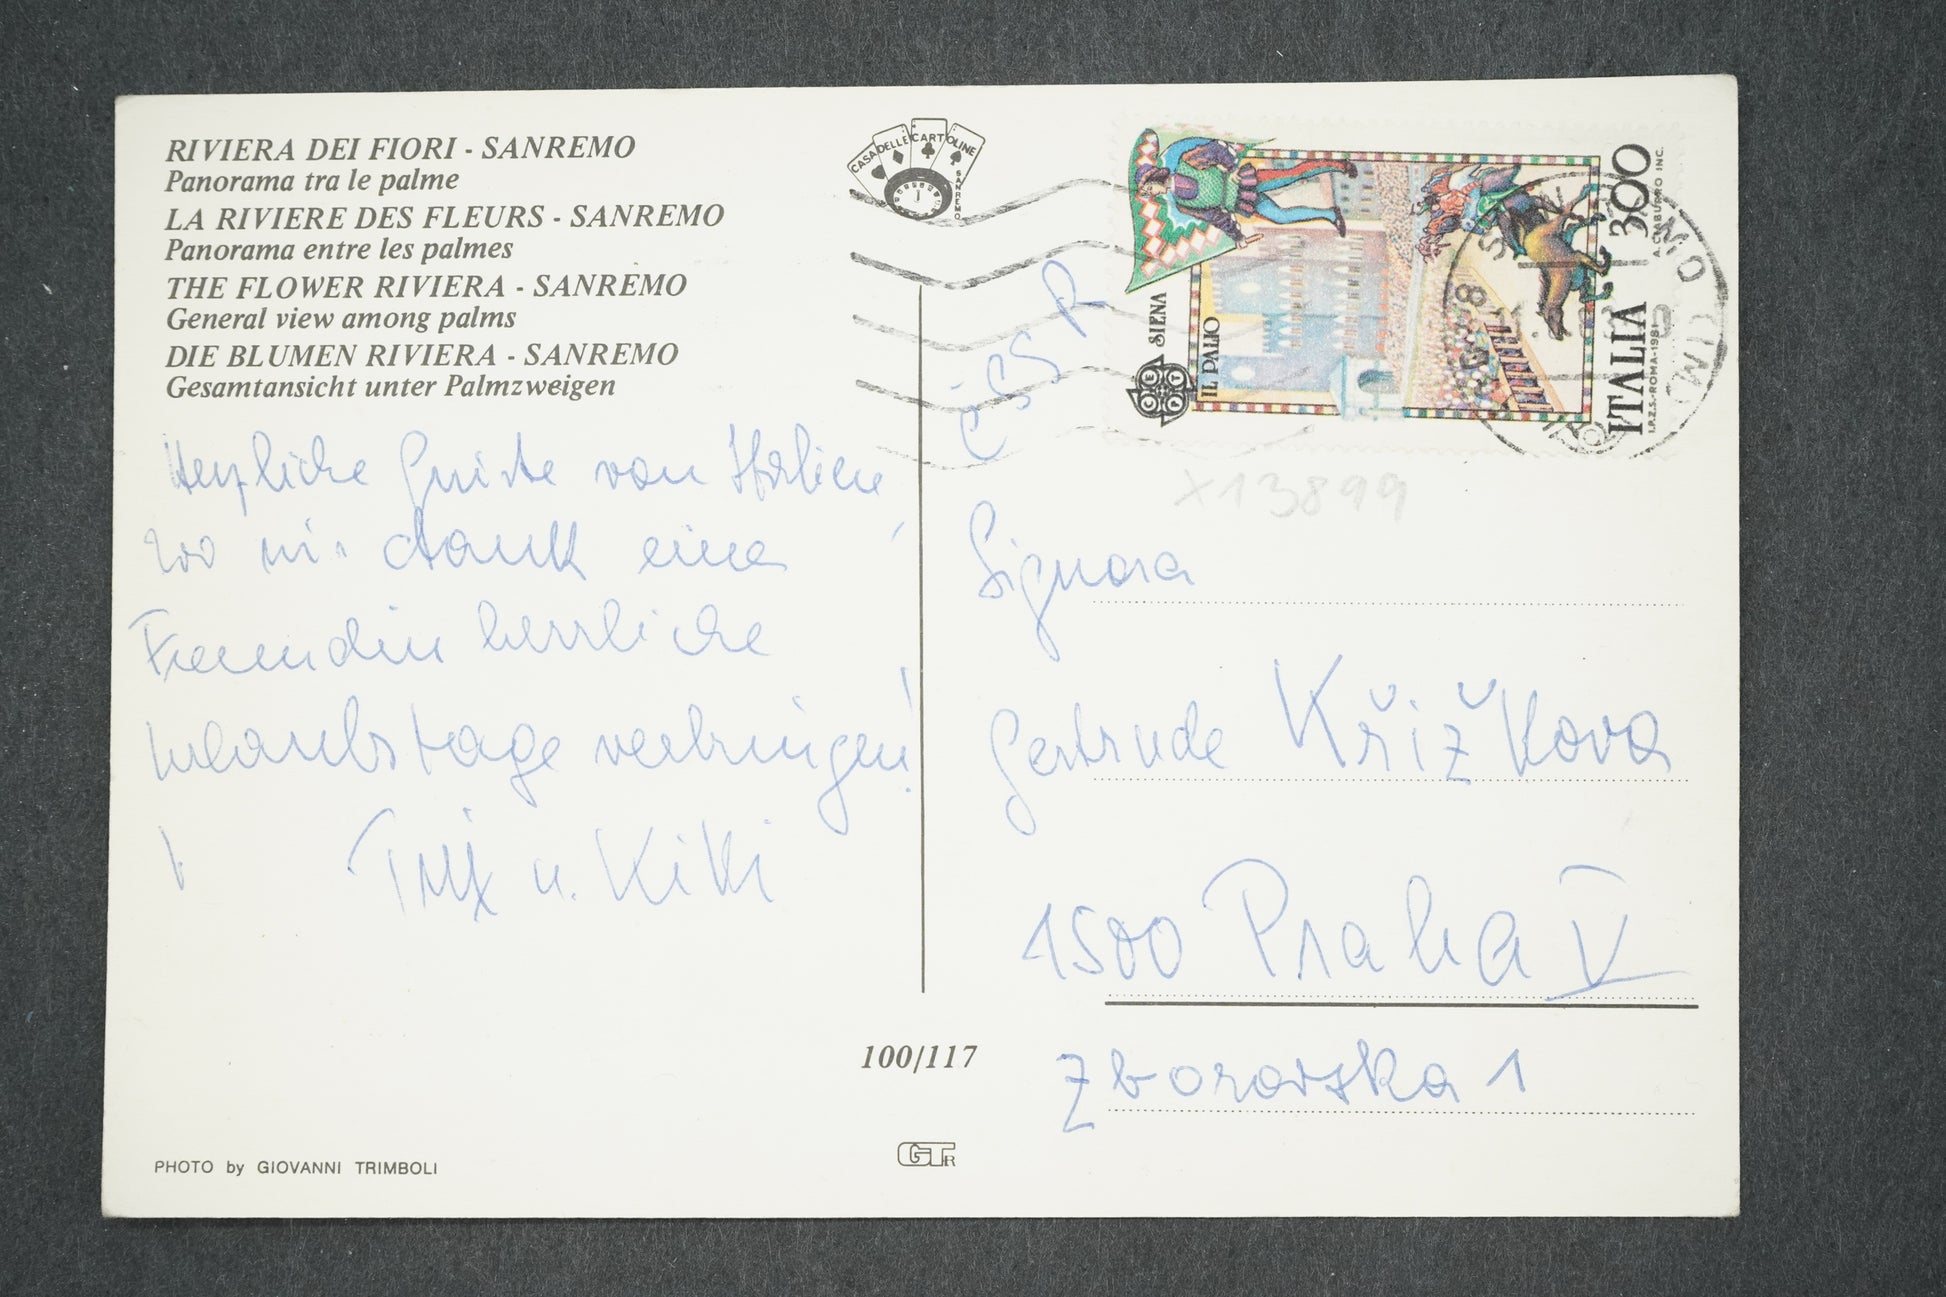 RIVIERA DEI FIORI - SANREMO
Panorama tra le palme
LA RIVIERE DES FLEURS - SANREMO
Panorama entre les palmes
THE FLOWER RIVIERA - SANREMO
General view among palms
DIE BLUMEN RIVIERA - SANREMO
Gesamtansicht unter Palmzweigen
Herzliche Grüße von Italien,
wo wir dank einer
Freundin herrliche
Urlaubstage verbringen!
Trixi u. Kiki
PHOTO by GIOVANNI TRIMBOLI
CASA DELLE CARTOLINE
SANREMO
100/117
GT
ČSSR
CEPT
SIENA
IL PALIO
ITALIA 300
I.P.Z.S.-ROMA-1981
A. CIABURRO INC.
X13899
Signora
Gertrude Křižkova
1500 Praha V
Zborovska 1